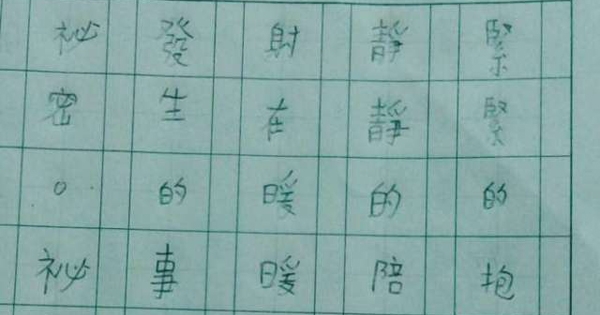 緊緊的抱
靜靜的陪
射在暖暖
發生的事
祕密。祕